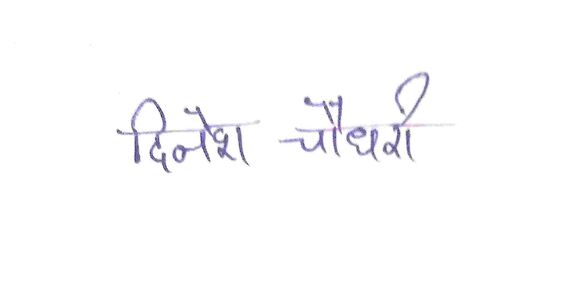 दिनेश चौधरी